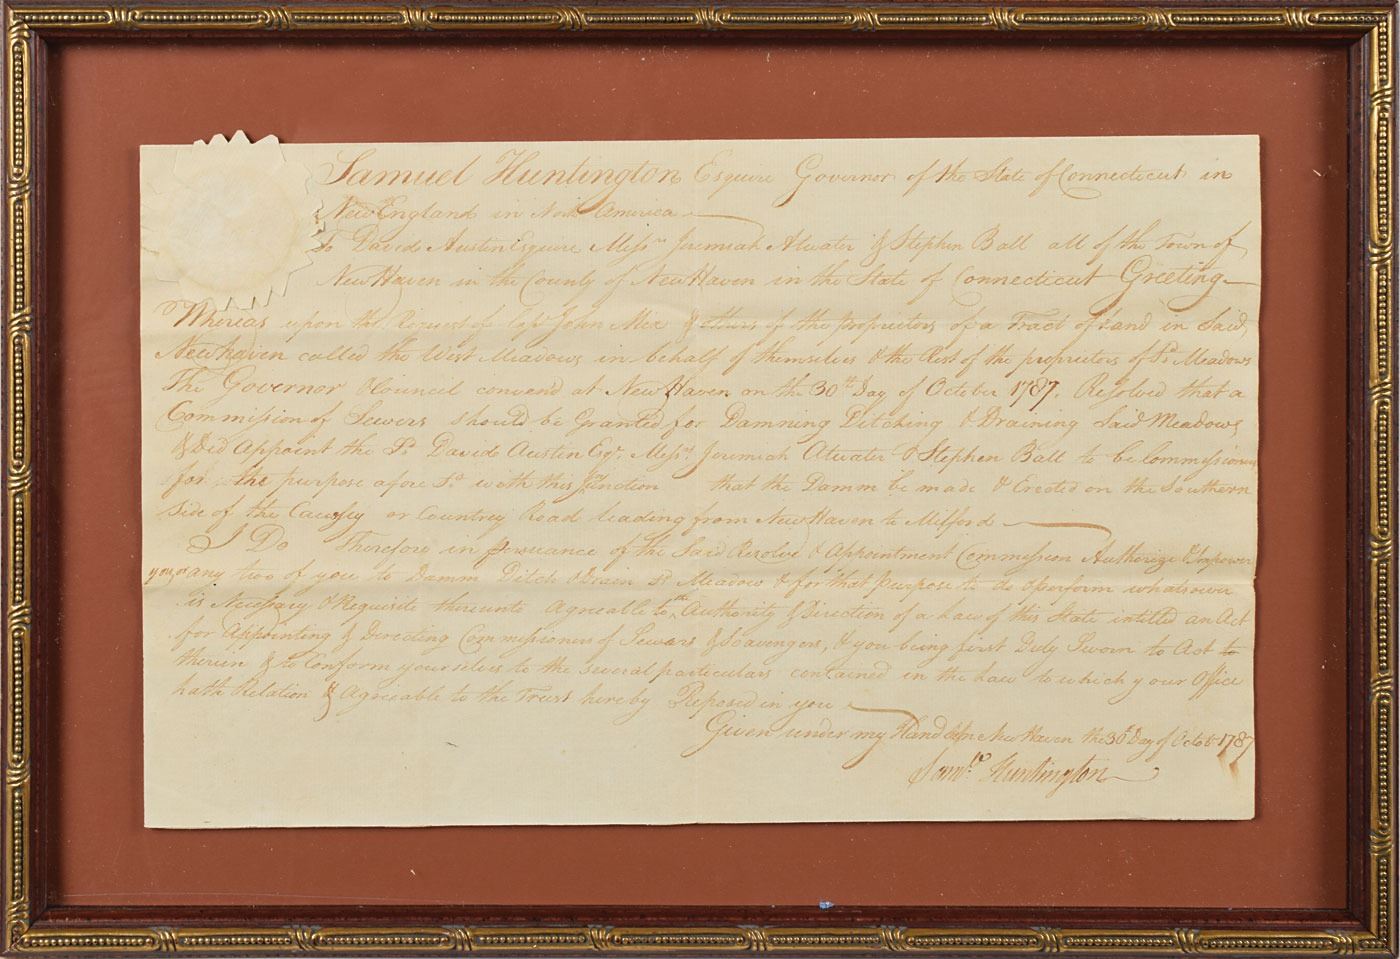 Samuel Huntington Esquire Governor of the State of Connecticut in
New England in North America
To David Austin Esquire Messrs Jeremiah Atwater & Stephen Ball all of the Town of
New Haven in the County of New Haven in the State of Connecticut Greeting
Whereas upon the Request of Capt John Mix & others of the proprietors of a Tract of Land in Said
New haven called the West Meadows in behalf of themselves & the Rest of the proprietors of Sd Meadows
The Governor & Council convend at New Haven on the 30th Day of October 1787. Resolved that a
Commission of Sewers should be Granted for Damning Ditching & Draining Said Meadows
& Did Appoint the Sd David Austin Esqr. Messrs Jeremiah Atwater & Stephen Ball to be Commissioners
for the purpose afore Sd with this that the Damm be made & Erected on the Southern
Side of the Causey or Countrey Road leading from New Haven to Milford
I Do Therefore in persuance of the Said Resolve & Appointment Commission Authorize & Impower
you, or any two of you to Damm Ditch & Drain Sd Meadow & for that purpose to do & perform whatsoever
is Necessary & Requisite thereunto Agreable to the Authority & Direction of a Law of this State intitled an Act
for Appointing & Directing Commissioners of Sewers & Scavengers, & you being first Duly Sworn to Act to
therein & to Conform yourselves to the several particulars contained in the Law to which your Office
hath Relation & Agreable to the Trust hereby Reposed in you
Given under my Hand New Haven the 30th Day of Octobr 1787
Saml. Huntington